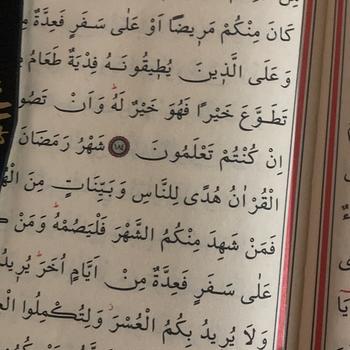 كَانَ مِنْكُمْ مَرِيضًا اَوْ عَلٰى سَفَرٍ فَعِدَّةٌ مِ
وَعَلَى الَّذِينَ يُطِيقُونَهُ فِدْيَةٌ طَعَامُ
تَطَوَّعَ خَيْرًا فَهُوَ خَيْرٌ لَهُ وَاَنْ تَصُو
اِنْ كُنْتُمْ تَعْلَمُونَ ١٨٤ شَهْرُ رَمَضَانَ
الْقُرْاٰنُ هُدًى لِلنَّاسِ وَبَيِّنَاتٍ مِنَ الْهُ
فَمَنْ شَهِدَ مِنْكُمُ الشَّهْرَ فَلْيَصُمْهُ وَمَنْ كَ
عَلٰى سَفَرٍ فَعِدَّةٌ مِنْ اَيَّامٍ اُخَرَ يُرِيدُ
وَلَا يُرِيدُ بِكُمُ الْعُسْرَ وَلِتُكْمِلُوا الْ